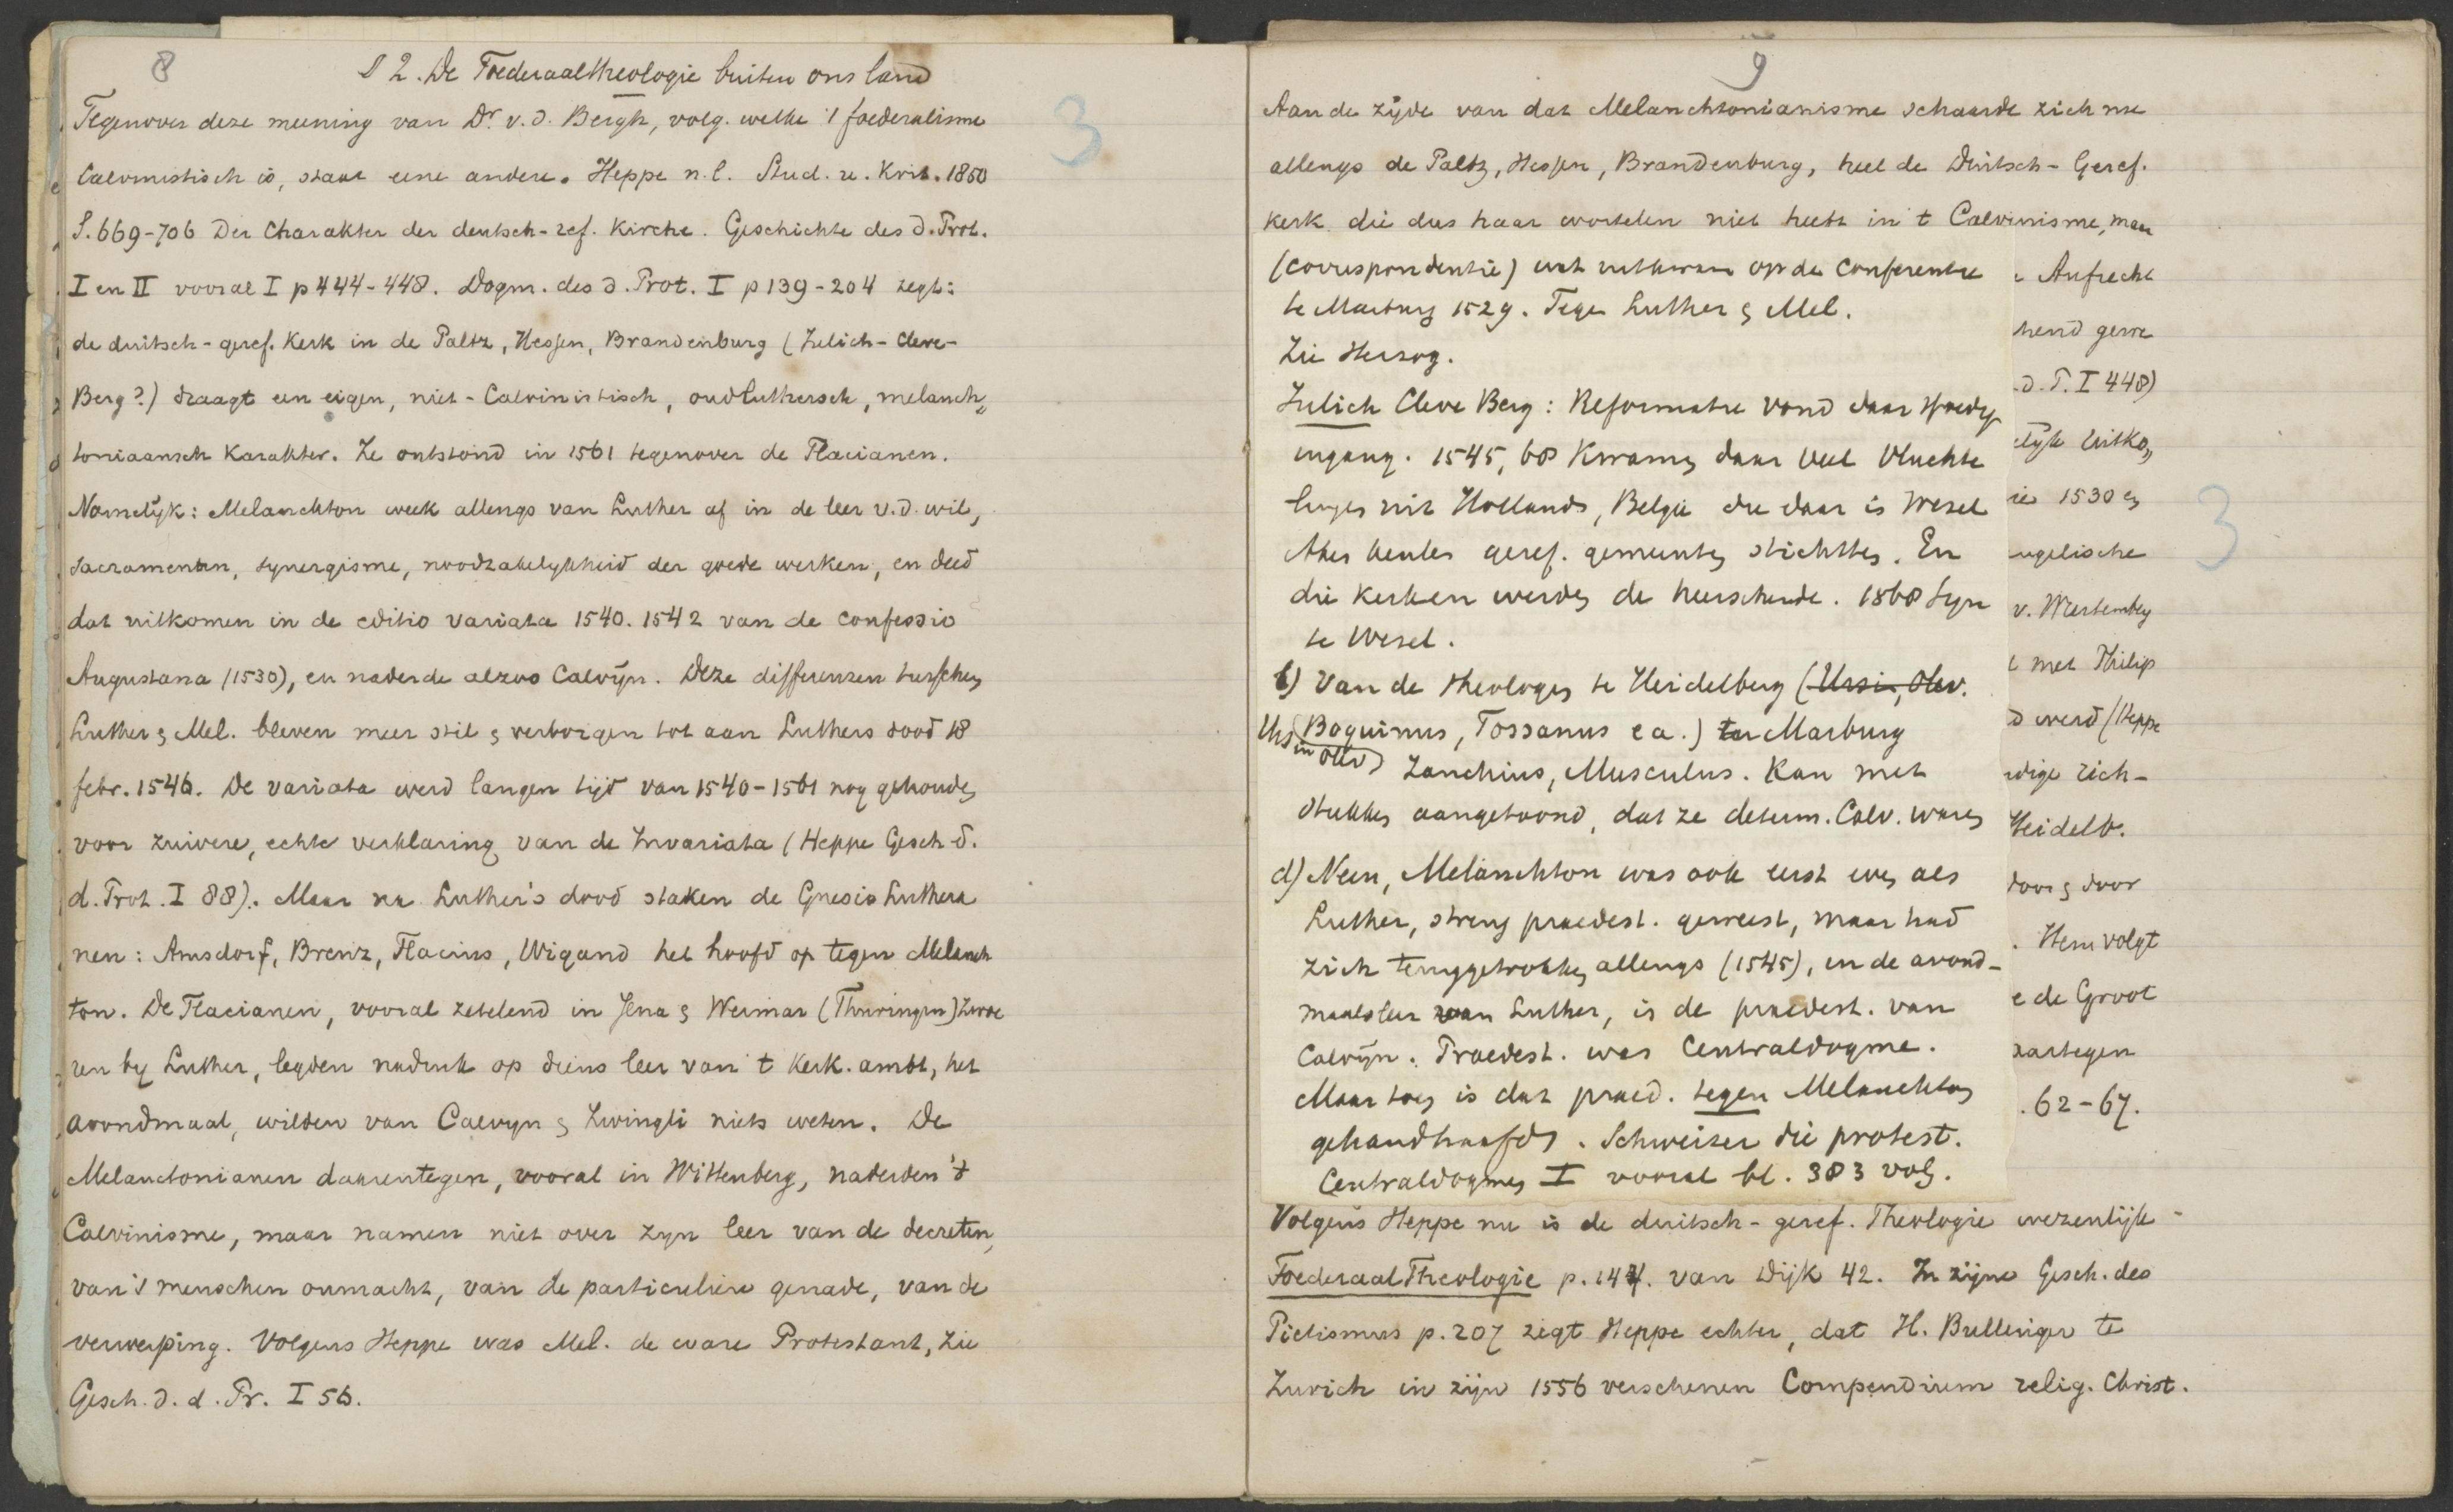 8
§ 2. De Foederaaltheologie buiten ons land
Tegenover deze meening van Dr. v. d. Bergh, volg. welke 't foederalisme
Calvinistisch is, staat eene andere. Heppe n.l. Stud. u. Krit. 1850
S. 669-706 Der Charakter der deutsch-ref. Kirche. Geschichte des d. Prot.
I en II vooral I p 444-448. Dogm. des d. Prot. I p 139-204 zegt:
de duitsch-geref. Kerk in de Paltz, Hessen, Brandenburg (Julich-Cleve-
Berg?) draagt een eigen, niet-Calvinistisch, oudluthersch, melanch„
toniaansch Karakter. Ze ontstond in 1561 tegenover de Flacianen.
Namelijk: Melanchton week allengs van Luther af in de leer v. d. wil,
sacramenten, synergisme, noodzakelykheid der goede werken, en deed
dat uitkomen in de editio variata 1540. 1542 van de confessio
Augustana (1530), en naderde alzoo Calvijn. Deze differenzen tusschen
Luther & Mel. bleven meer stil & verborgen tot aan Luthers dood 18
febr. 1546. De variata werd langen tijd van 1540-1561 nog gehouden
voor zuivere, echte verklaring van de Invariata (Heppe Gesch d.
d. Prot. I 88). Maar na Luther's dood staken de Gnesio Luthera
nen: Amsdorf, Brenz, Flacius, Wigand het hoofd op tegen Melanch
ton. De Flacianen, vooral zetelend in Jena & Weimar (Thuringen) zwoe
ren by Luther, legden nadruk op diens leer van 't Kerk. ambt, het
avondmaal, wilden van Calvyn & Zwingli niets weten. De
Melanctonianen daarentegen, vooral in Wittenberg, naderden 't
Calvinisme, maar namen niet over zyn leer van de decreten,
van 's menschen onmacht, van de particuliere genade, van de
verwerping. Volgens Heppe was Mel. de ware Protestant, zie
Gesch. d. d. Pr. I 56.
3
9
Aan de zijde van dat Melanchtonianisme schaarde zich nu
allengs de Paltz, Hessen, Brandenburg, heel de Duitsch-Geref.
kerk die dus haar wortelen niet heeft in 't Calvinisme, maar
(correspondentie) wat uitkwam op de Conferentie
te Marburg 1529. Tegen Luther & Mel.
Zie Herzog.
Julich Cleve Berg: Reformatie vond daar spoedig
ingang. 1545, 68 Kwamen daar veel Vluchte
lingen uit Holland, België die daar is Wesel
Aken geref. gemeenten stichtten. En
die kerken werden de heerschende. 1568 Syn
te Wesel.
b) Van de theologen te Heidelberg (Ursin, Olev.
Ursin Olev) Boquinus, Tossanus e a.) te Marburg
Zanchius, Musculus. Kan met
stukken aangetoond, dat ze determ. Calv. waren
d) Neen, Melanchton was ook eerst even als
Luther, streng praedest. geweest, maar had
zich teruggetrokken allengs (1545), en de avond-
maalsleer van Luther, is de praedest. van
Calvijn. Praedest. was Centraldogme.
Maar toen is dat praed. tegen Melanchton
gehandhaafd. Schweizer die protest.
Centraldogmen I vooral bl. 383 volg.
Aufrecht
hend gerre
. d. P. I 448)
elijk uitko„
ie 1530 en
ngelische
v. Wurtemberg
t met Philip
d werd (Heppe
rdige rich-
Heidelb.
door & door
. Hem volgt
e de Groot
aartegen
. 62-67.
3
Volgens Heppe nu is de duitsch-geref. Theologie wezenlijk
FoederaalTheologie p. 144. van Dijk 42. In zijne Gesch. des
Pietismus p. 207 zegt Heppe echter, dat H. Bullenger te
Zurich in zijn 1556 verschenen Compendium relig. Christ.